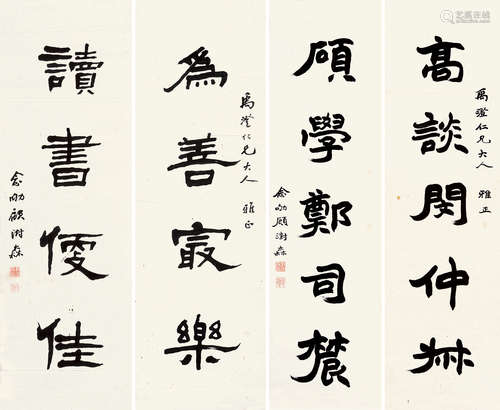 高談閔仲叔
禹澄仁兄大人 雅正
碩學鄭司農
念劬顧澍森
為善㝡樂
禹澄仁兄大人 雅正
讀書便佳
念劬顧澍森
艺狐在线